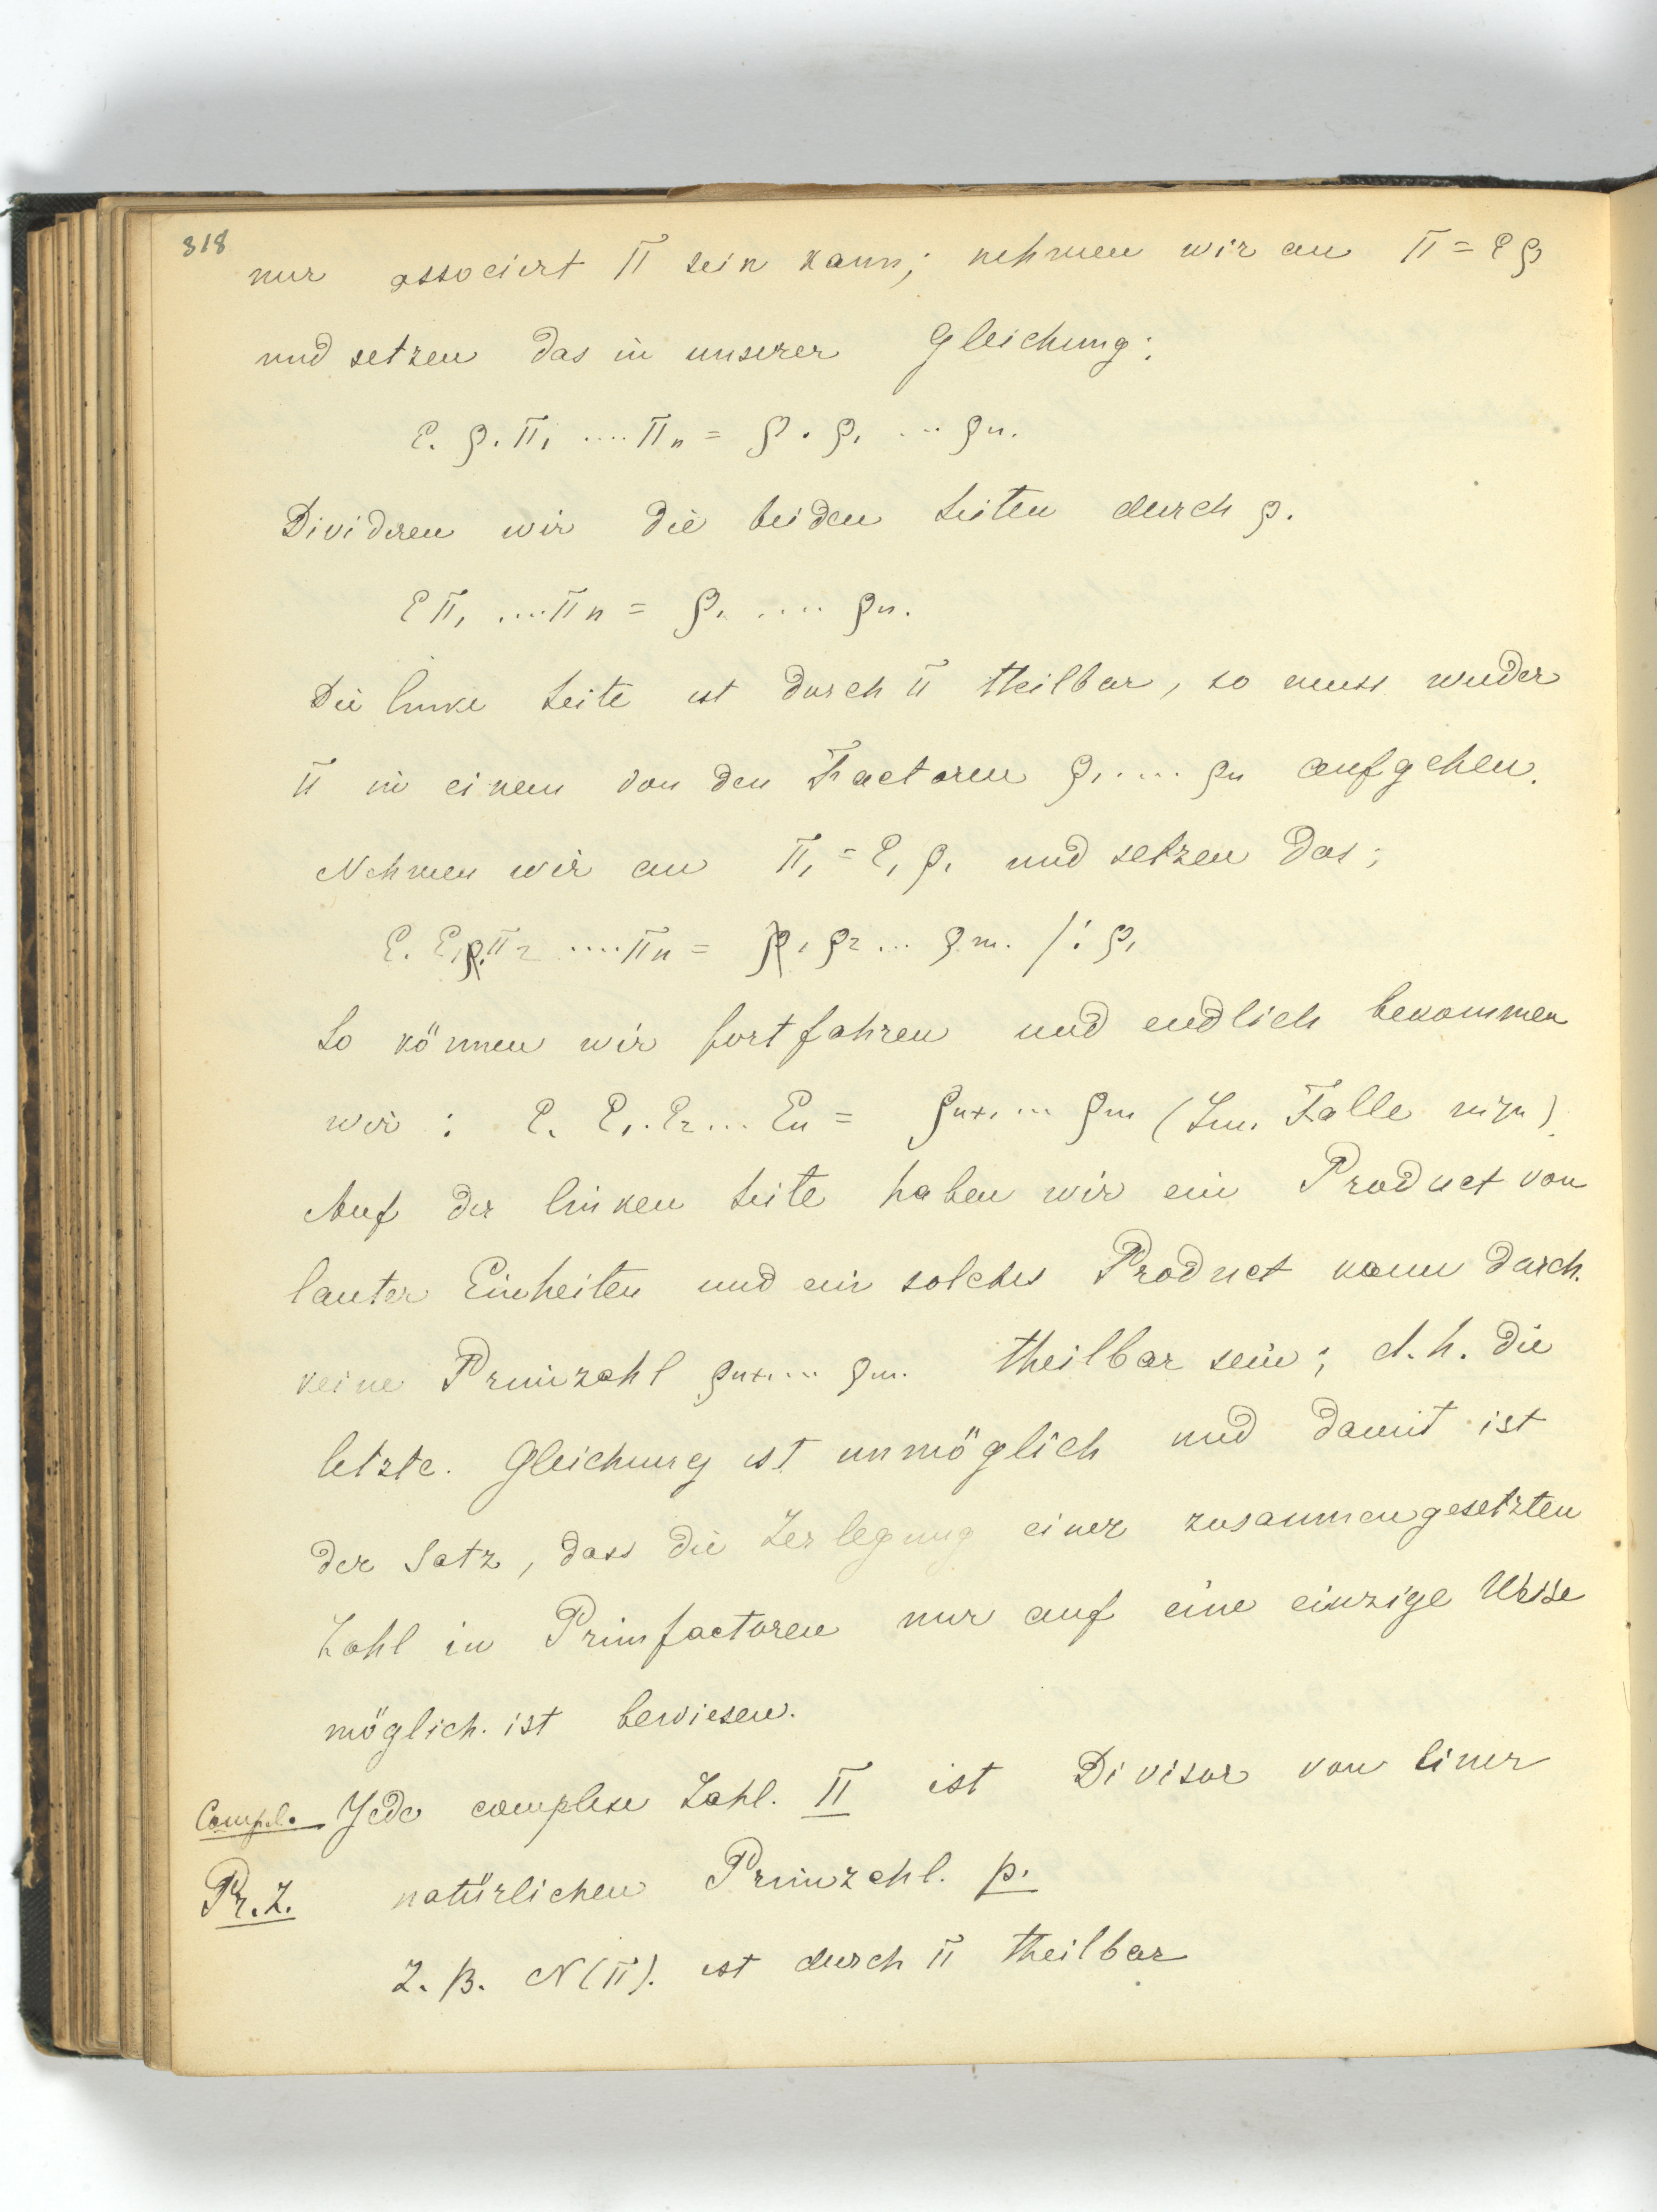 318
nur associirt π sein kann; nehmen wir an π = ερ
und setzen das in unserer Gleichung:
ε. ρ. π₁ .... πₙ = ρ . ρ₁ ... ρₙ.
Dividiren wir die beiden Seiten durch ρ.
επ₁ .... πₙ = ρ₁ .... ρₙ.
Die linke Seite ist durch π theilbar, so muss wieder
π in einem von den Factoren ρ₁ .... ρₙ aufgehen.
Nehmen wir an π₁ = ε₁ ρ₁ und setzen das;
ε. ε₁ρ₁π₂ .... πₙ = ρ₁ ρ₂ ... ρₘ. /: ρ₁
So können wir fortfahren und endlich bekommen
wir : ε. ε₁. ε₂ ... εₙ = ρₙ₊₁ ... ρₘ (Im. Falle m>n).
Auf der linken Seite haben wir ein Product von
lauter Einheiten und ein solches Product kann durch.
keine Primzahl ρₙ₊₁ ... ρₘ. theilbar sein; d.h. die
letzte. Gleichung ist unmöglich und damit ist
der Satz, dass die Zerlegung einer zusammengesetzten
Zahl in Primfactoren nur auf eine einzige Weise
möglich. ist bewiesen.
Compl. Jede complexe Zahl. π ist Divisor von einer
Pr.Z. natürlichen Primzahl. p.
Z. B. N(π). ist durch π theilbar